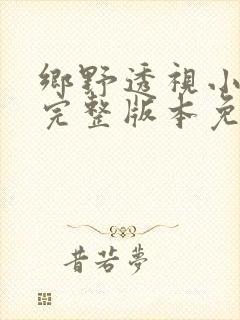 鄉野透視小
完整版本免
昔若夢